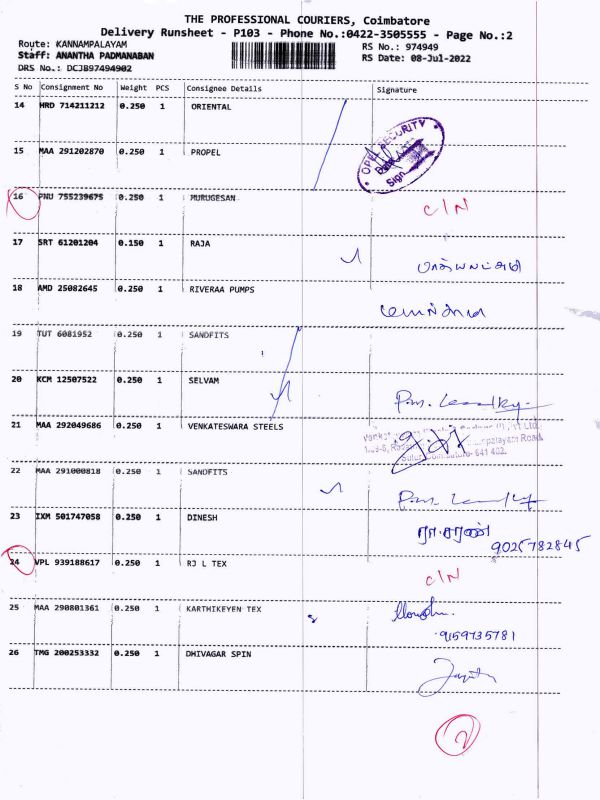 THE PROFESSIONAL COURIERS, Coimbatore
Delivery Runsheet - P103 - Phone No.:0422-3505555 - Page No.:2
Route: KANNAMPALAYAM RS No.: 974949
Staff: ANANTHA PADMANABAN RS Date: 08-Jul-2022
DRS No.: DCJB97494902
S No Consignment No Weight PCS Consignee Details Signature
14 HRD 714211212 0.250 1 ORIENTAL
SECURITY
Sign
15 MAA 291202870 0.250 1 PROPEL
16 PNU 755239675 0.250 1 MURUGESAN C/N
17 SRT 61201204 0.150 1 RAJA
18 AMD 25082645 0.250 1 RIVERAA PUMPS
19 TUT 6081952 0.250 1 SANDFITS
20 KCM 12507522 0.250 1 SELVAM
21 MAA 292049686 0.250 1 VENKATESWARA STEELS
641 402.
22 MAA 291000818 0.250 1 SANDFITS
23 IXM 501747058 0.250 1 DINESH ரா.சரண்
9025782845
24 VPL 939188617 0.250 1 RJ L TEX C/N
25 MAA 290801361 0.250 1 KARTHIKEYEN TEX
9159735781
26 TMG 200253332 0.250 1 DHIVAGAR SPIN
2